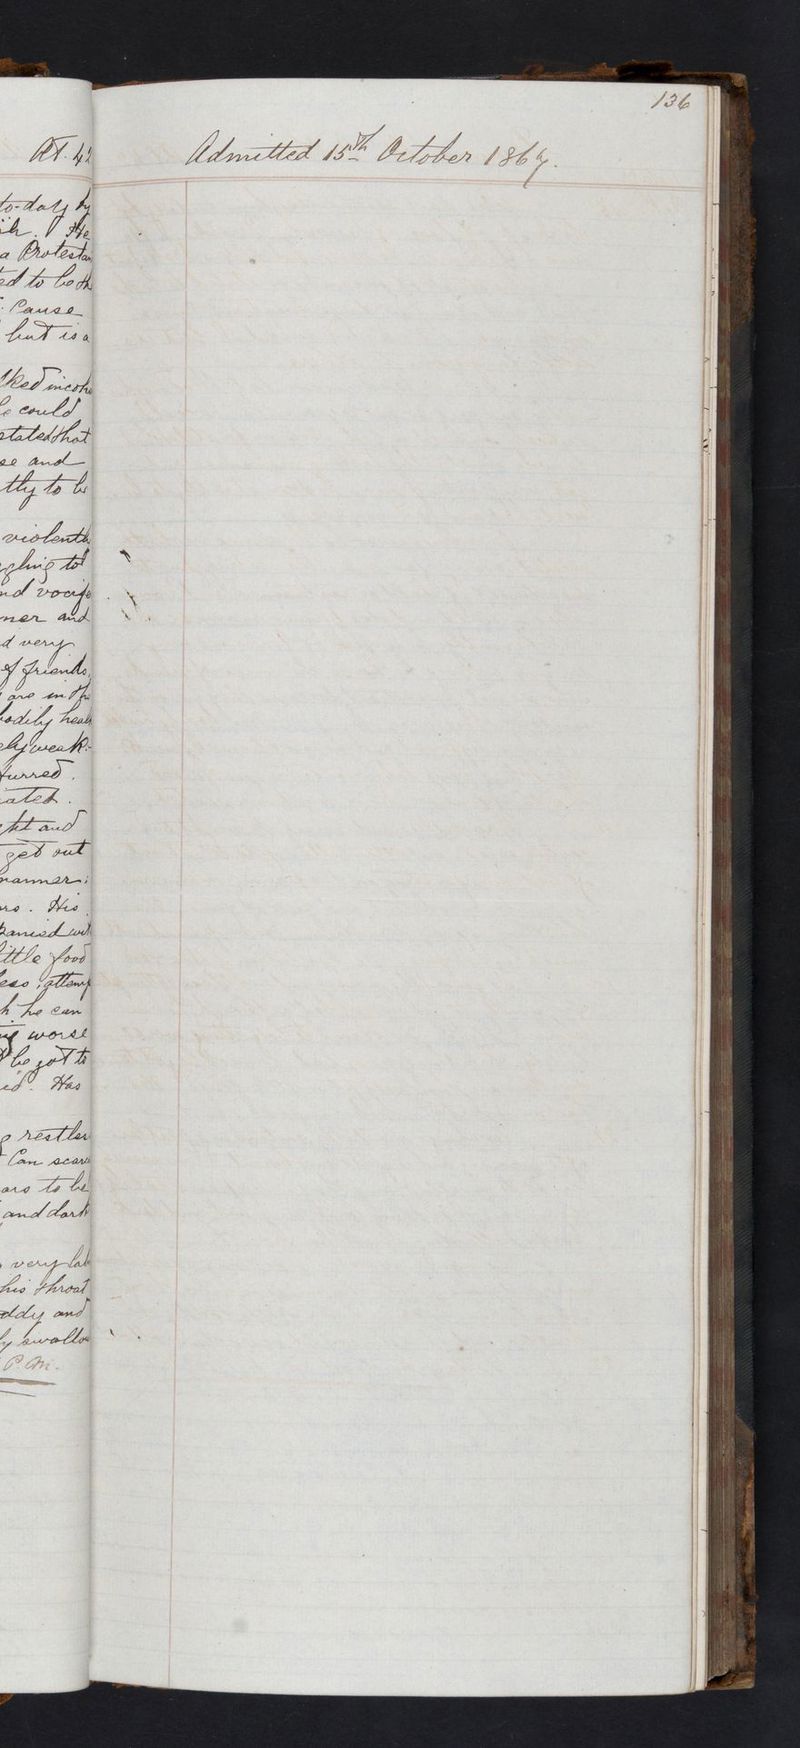 Æt. 42
to-day by
He
a Protestan
ed to be th
Cause
but is a
lked incohe
he could
stated that
se and
tly to be
violent
ggling to
nd vocife
ner and
d very
of friends,
are in the
bodily heal
ely weak-
furred.
iated.
ght and
get out
manner;
ro. His
panied wit
ittle food
less, attemp
h he can
ng worse
be got to
id. Has
g restles
Can scarc
ars to be
and dark
very lab
his throat
ddy and
ly swallow
P.M.
136
Admitted 15th October 1867.